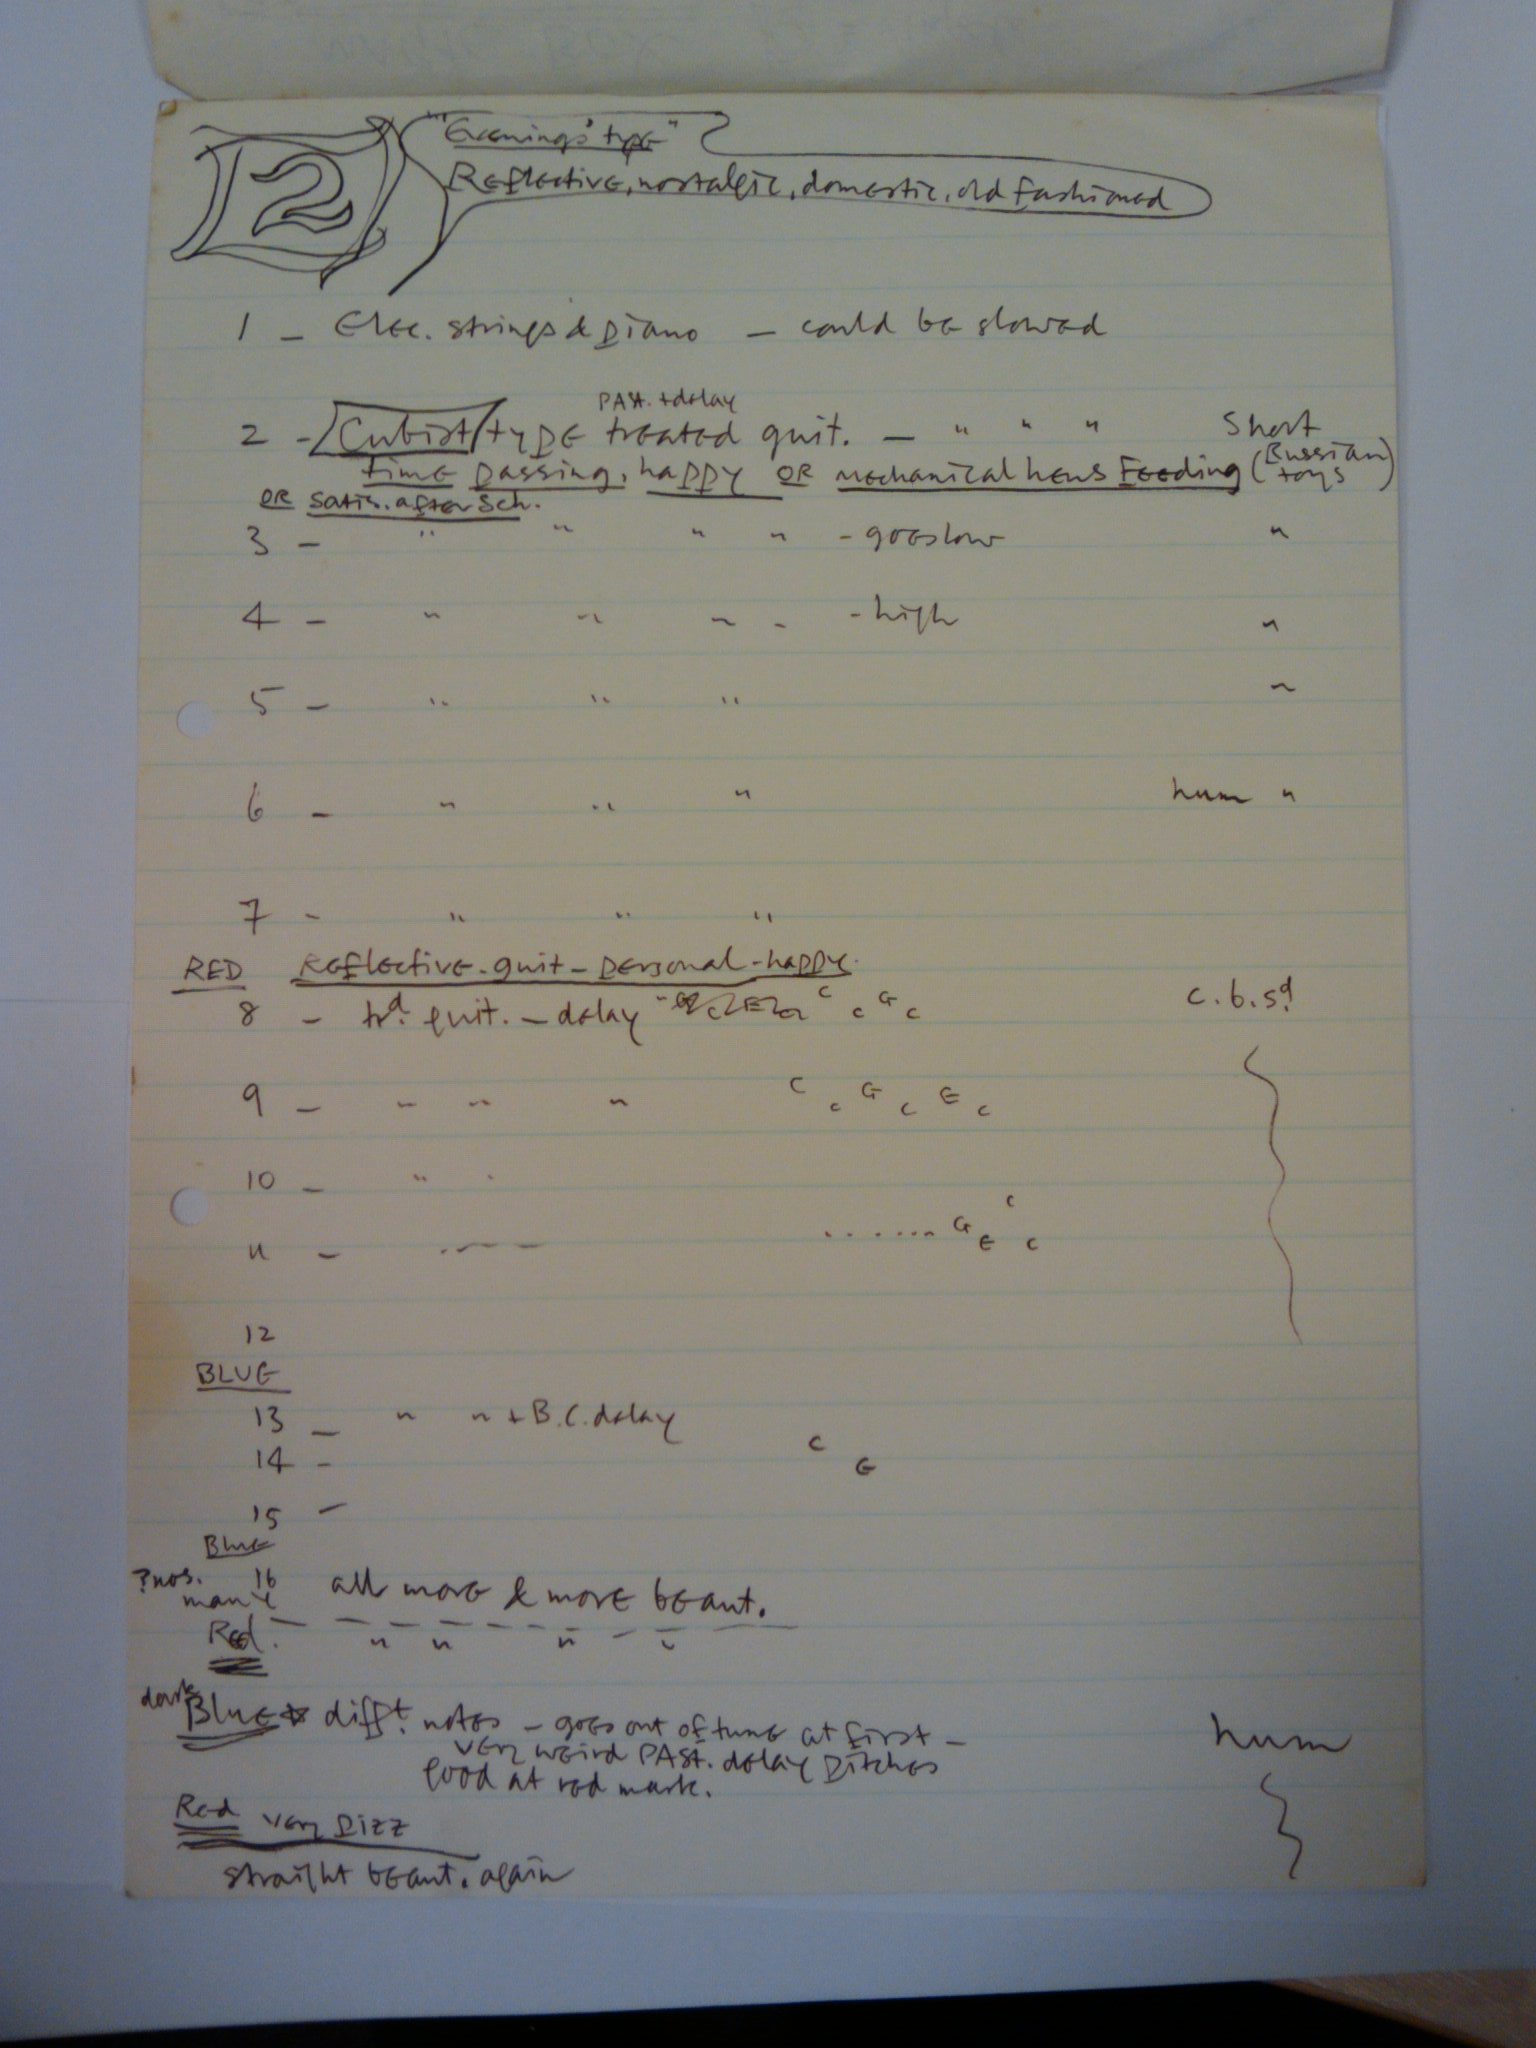 2
"'Evenings' type"
Reflective, nostalgic, domestic, old fashioned
1 - Elec. strings & piano - could be slowed
PAST. + delay
2 - Cubist type treated guit. - " " " Short
time passing, happy OR mechanical hens Feeding (Russian toys)
OR satis. after sch.
3 - " " " " - goes low "
4 - " " " " - high "
5 - " " " "
6 - " " " hum "
7 - " " "
RED Reflective. guit - personal - happy.
8 - trd. guit. - delay C C G C c.b.sd
9 - " " " C C G C E C
10 - " "
11 - G E C C
12
BLUE
13 - " " + B.C. delay
14 - C G
15 -
Blue
?nos. 16 all more & more beaut.
many
Red. " " " "
dark
Blue difft. notes - goes out of tune at first - hum
very weird PAST. delay pitches
good at red mark.
Red very pizz
straight beaut. again